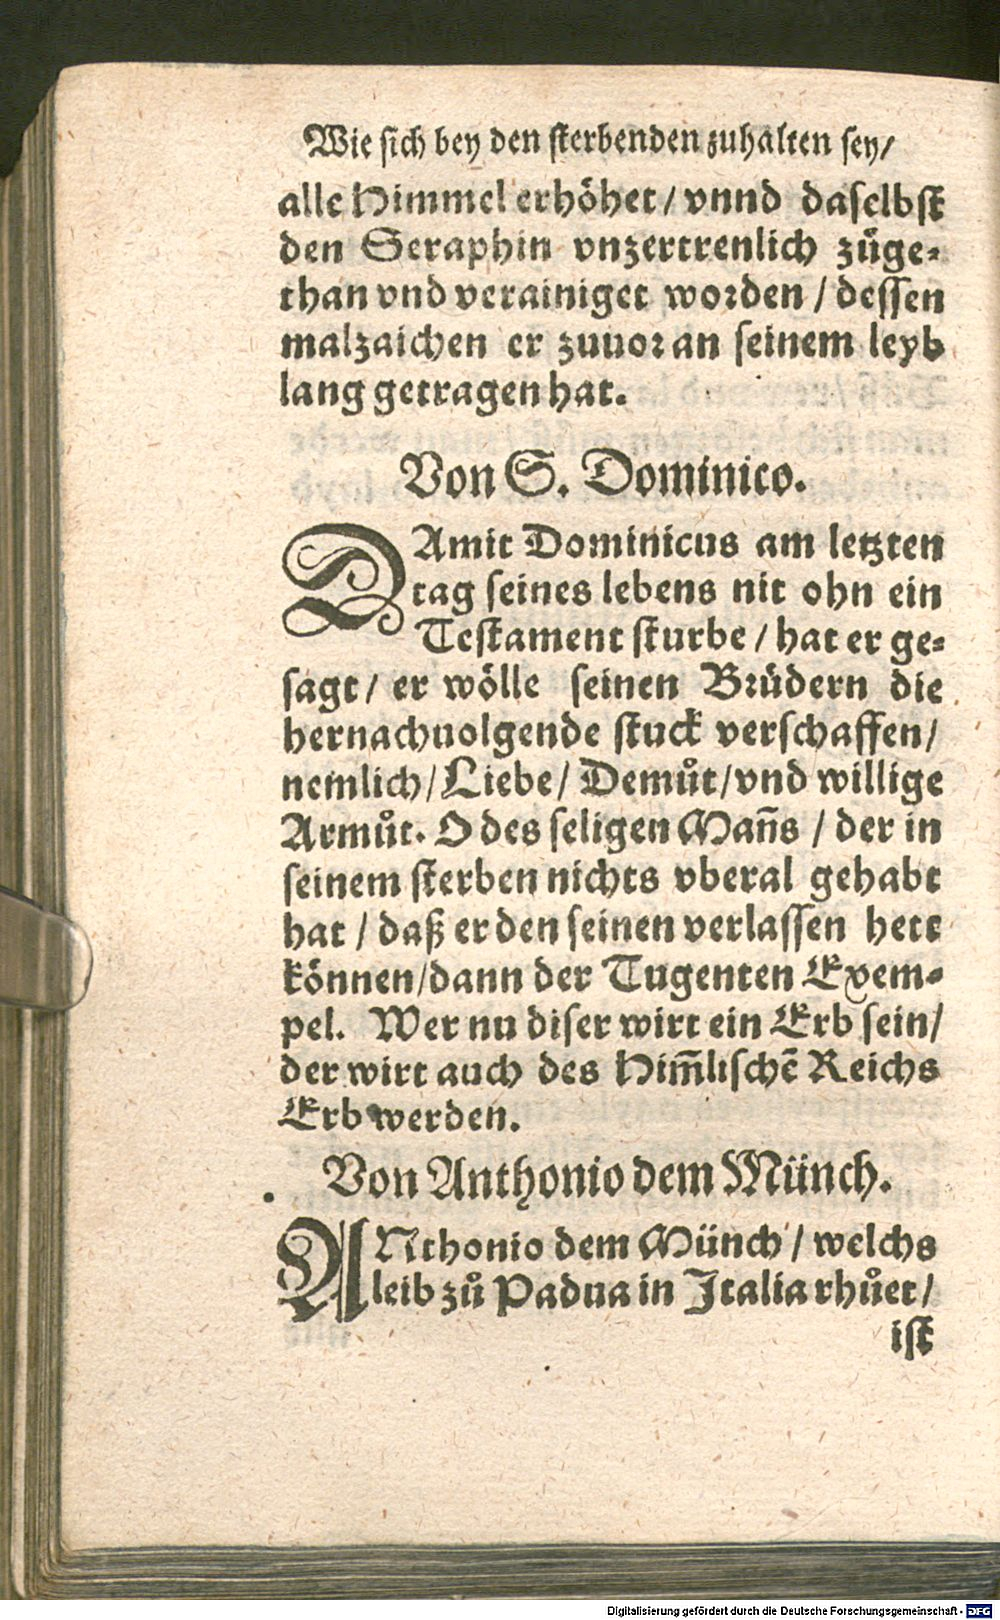 Wie sich bey den sterbenden zuhalten sey/
alle Himmel erhöhet / vnnd daselbst
den Seraphin vnzertrenlich zůge-
than vnd verainiget worden / dessen
malzaichen er zuuor an seinem leyb
lang getragen hat.
Von S. Dominico.
DAmit Dominicus am letzten
tag seines lebens nit ohn ein
Testament sturbe / hat er ge-
sagt / er wölle seinen Brüdern die
hernachuolgende stuck verschaffen/
nemlich / Liebe / Demůt / vnd willige
Armůt. O des seligen Mañs / der in
seinem sterben nichts vberal gehabt
hat / daß er den seinen verlassen hett
können / dann der Tugenten Exem-
pel. Wer nu diser wirt ein Erb sein/
der wirt auch des Him̃lischẽ Reichs
Erb werden.
Von Anthonio dem Münch.
ANthonio dem Münch / welchs
leib zů Padua in Italia rhůet /
ist
Digitalisierung gefördert durch die Deutsche Forschungsgemeinschaft - DFG